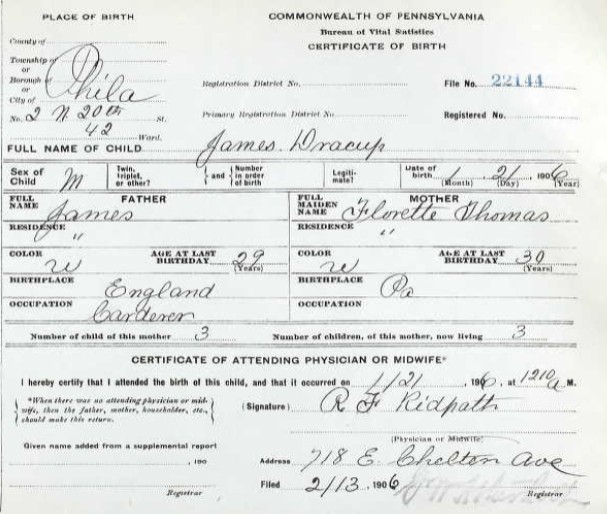 PLACE OF BIRTH
COMMONWEALTH OF PENNSYLVANIA
Bureau of Vital Statistics
CERTIFICATE OF BIRTH
County of
Township of
or
Borough of
or
City of
Phila
Registration District No.
File No. 22144
No. 2 N. 20th St.
Primary Registration District No.
Registered No.
42 Ward.
FULL NAME OF CHILD James Dracup
Sex of Child M
Twin, triplet, or other?
and Number in order of birth
Legitimate?
Date of birth 1 21 1906
(Month) (Day) (Year)
FATHER
FULL NAME James
RESIDENCE "
COLOR W
AGE AT LAST BIRTHDAY 29
(Years)
BIRTHPLACE England
OCCUPATION Carderer
MOTHER
FULL MAIDEN NAME Florette Thomas
RESIDENCE "
COLOR W
AGE AT LAST BIRTHDAY 30
(Years)
BIRTHPLACE Pa
OCCUPATION
Number of child of this mother 3
Number of children, of this mother, now living 3
CERTIFICATE OF ATTENDING PHYSICIAN OR MIDWIFE*
I hereby certify that I attended the birth of this child, and that it occurred on 1/21, 1906, at 1210a M.
*When there was no attending physician or mid-
wife, then the father, mother, householder, etc.,
should make this return.
(Signature) R F Ridpath
(Physician or Midwife)
Given name added from a supplemental report
, 190
Registrar
Address 718 E. Chelten Ave
Filed 2/13 1906
Registrar